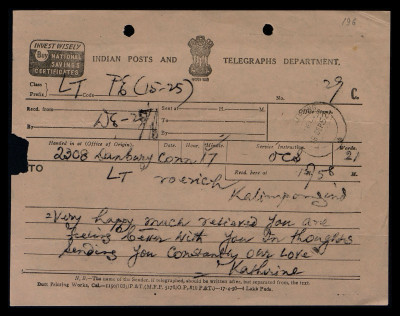 196
INVEST WISELY
BUY NATIONAL
SAVINGS
CERTIFICATES
INDIAN POSTS AND TELEGRAPHS DEPARTMENT.
Class LT Code
Prefix
No. 29 C.
Recd. from
Sent at H. M.
Office Stamp.
By
To
By
Handed in at (Office of Origin). Date. Hour. Minute. Service Instructions. Words.
2308 Danbury Conn 17 21
Recd. here at H. M.
TO
LT roerich
Kalimpong
= Very happy much relieved you are
feeling better with you in thoughts
sending you constantly our love =
Kathrine
N. B.—The name of the Sender, if telegraphed, should be written after, but separated from, the text.